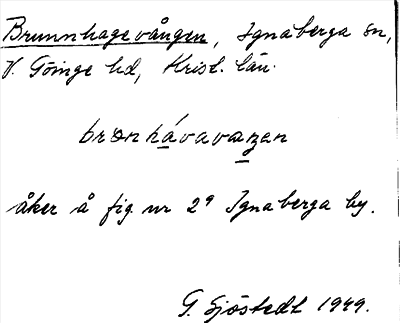 Brunnhagevången, Ignaberga sn,
V. Göinge hd, Krist. län.
bronhávavaŋen
åker å fig. nr 2⁹ Ignaberga by.
G. Sjöstedt 1949.